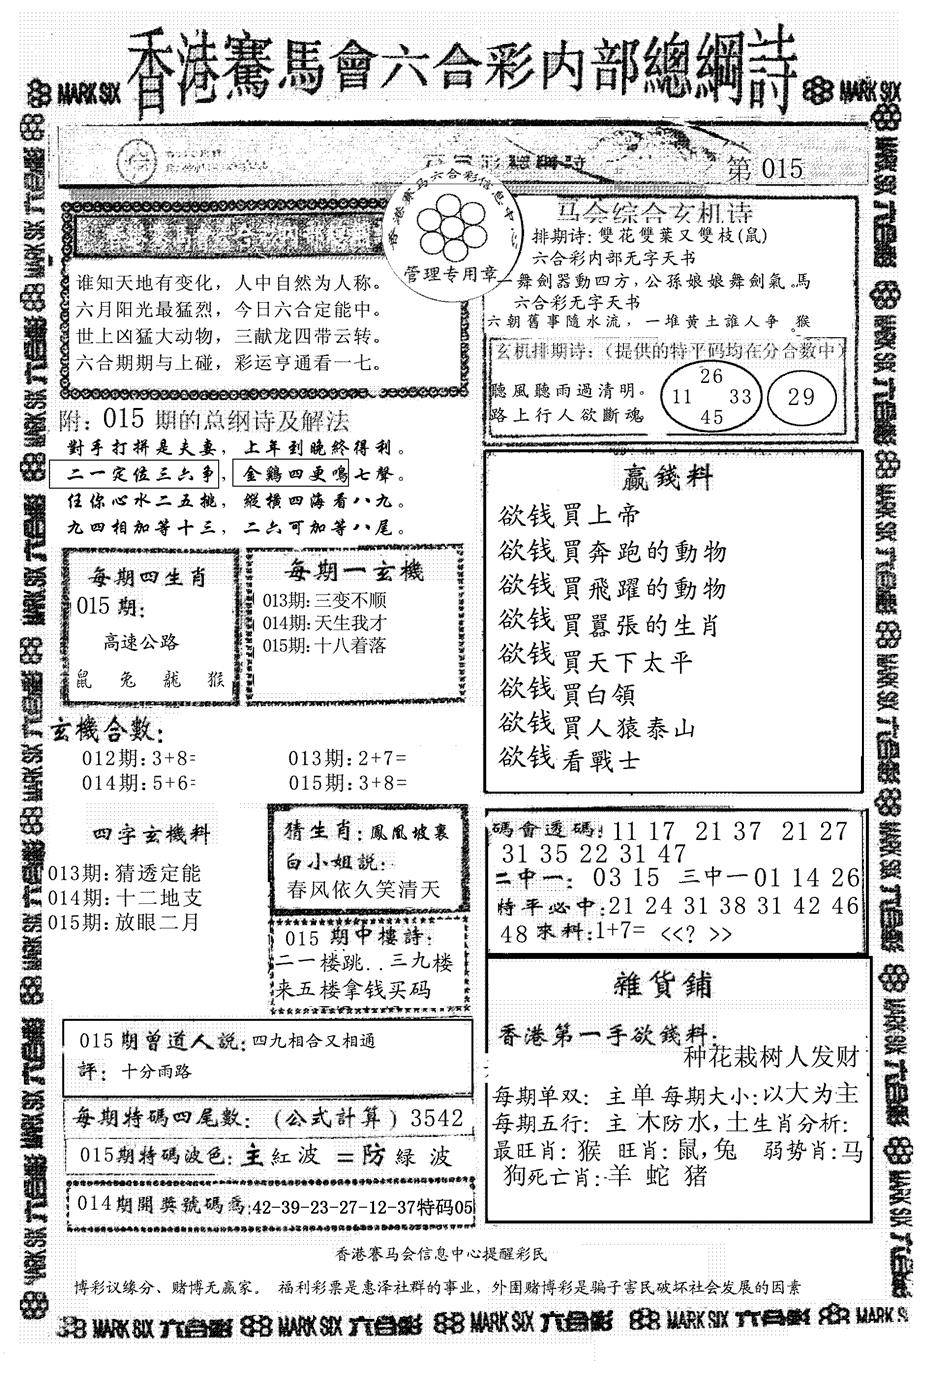 香港賽馬會六合彩内部總綱詩
MARK SIX
MARK SIX
第 015
香港赛马六合彩信息中
管理专用章
谁知天地有变化，人中自然为人称。
六月阳光最猛烈，今日六合定能中。
世上凶猛大动物，三献龙四带云转。
六合期期与上碰，彩运亨通看一七。
马会综合玄机诗
排期诗: 雙花雙葉又雙枝(鼠)
六合彩内部无字天书
一舞劍器動四方，公孫娘娘舞劍氣。馬
六合彩无字天书
六朝舊事隨水流，一堆黄土誰人争。猴
玄机排期诗:（提供的特平码均在分合数中）
聽風聽雨過清明。
路上行人欲斷魂
26
11 33
45
29
附: 015 期的总纲诗及解法
對手打拼是夫妻，上年到晚終得利。
二一定位三六争，金鷄四更鳴七聲。
任你心水二五挑，縱橫四海看八九。
九四相加等十三，二六可加等八尾。
每期四生肖
015 期:
高速公路
鼠 兔 龍 猴
每期一玄機
013期: 三变不顺
014期: 天生我才
015期: 十八着落
玄機合數:
012期: 3+8=
013期: 2+7=
014期: 5+6=
015期: 3+8=
四字玄機料
013期: 猜透定能
014期: 十二地支
015期: 放眼二月
猜生肖: 鳳凰坡裏
白小姐説:
春风依久笑清天
015 期中樓詩:
二一楼跳..三九楼
来五楼拿钱买码
赢錢料
欲钱買上帝
欲钱買奔跑的動物
欲钱買飛躍的動物
欲钱買囂張的生肖
欲钱買天下太平
欲钱買白領
欲钱買人猿泰山
欲钱看戰士
碼會透碼: 11 17 21 37 21 27
31 35 22 31 47
二中一: 03 15 三中一 01 14 26
特平必中: 21 24 31 38 31 42 46
48 來料: 1+7= <<? >>
015期曾道人説: 四九相合又相通
評: 十分雨路
每期特碼四尾數: (公式計算) 3542
015期特碼波色: 主紅波 =防 緑 波
014期開獎號碼爲:42-39-23-27-12-37特码05
雜貨鋪
香港第一手欲錢料:
种花栽树人发财
每期单双: 主 单 每期大小: 以大为主
每期五行: 主 木防水，土生肖分析:
最旺肖: 猴 旺肖: 鼠，兔 弱势肖: 马
狗死亡肖: 羊 蛇 猪
香港赛马会信息中心提醒彩民
博彩议缘分、赌博无赢家。 福利彩票是惠泽社群的事业，外围赌博彩是骗子害民破坏社会发展的因素
MARK SIX 六合彩 MARK SIX 六合彩 MARK SIX 六合彩 MARK SIX 六合彩 MARK SIX